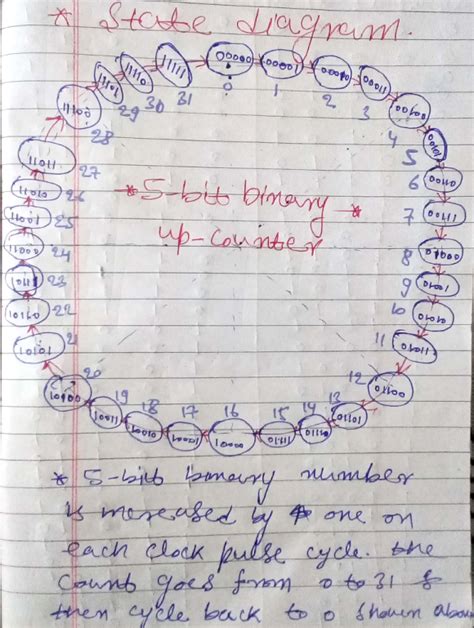 * State diagram.
00000
0
00001
1
00010
2
00011
3
00100
4
00101
5
00110
6
00111
7
01000
8
01001
9
01010
10
01011
11
01100
12
01101
13
01110
14
01111
15
10000
16
10001
17
10010
18
10011
19
10100
20
10101
21
10110
22
10111
23
11000
24
11001
25
11010
26
11011
27
11100
28
11101
29
11110
30
11111
31
* 5-bit binary *
up-counter
* 5-bit binary number
is increased by one on
each clock pulse cycle. the
count goes from 0 to 31 &
then cycle back to 0 shown above